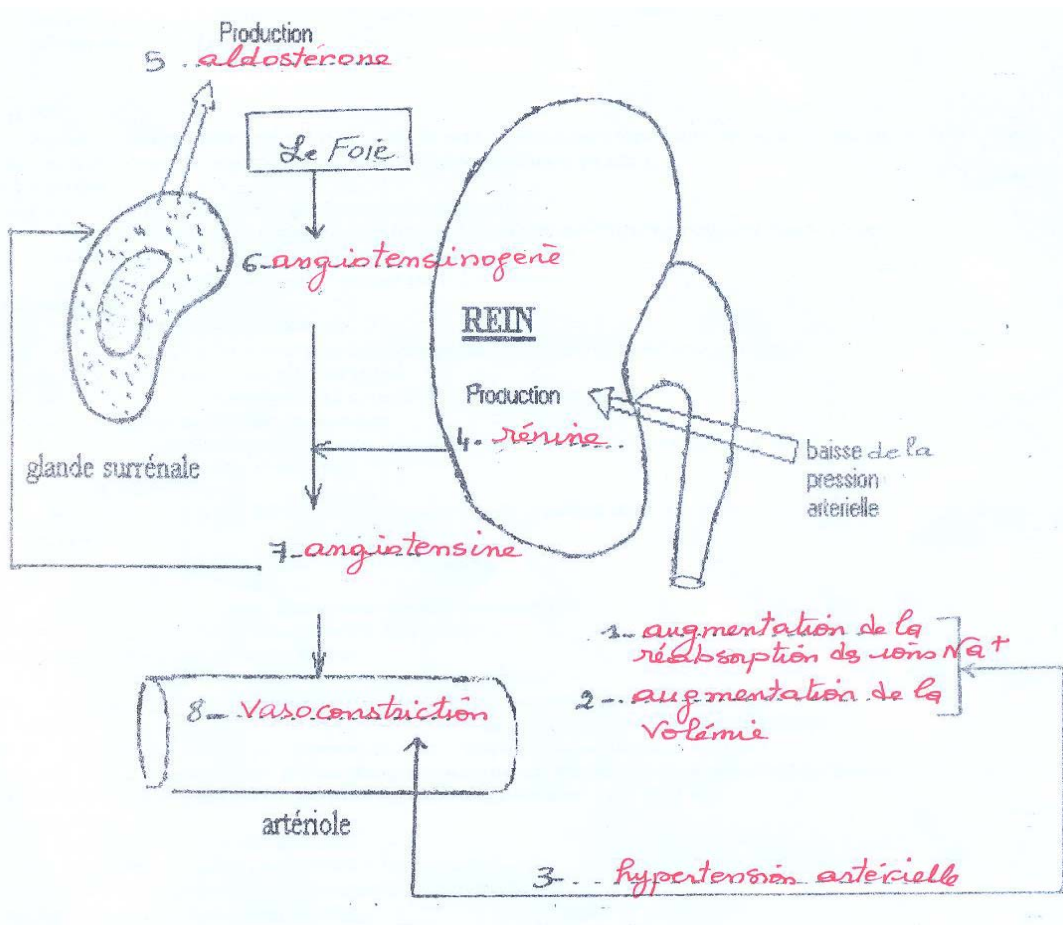 Production
5. aldostérone
Le Foie
6- angiotensinogène
REIN
Production
4. rénine
glande surrénale
baisse de la
pression
arterielle
7- angiotensine
1- augmentation de la
réabsorption des ions Na+
2- augmentation de la
volémie
8- vasoconstriction
artériole
3- hypertension artérielle